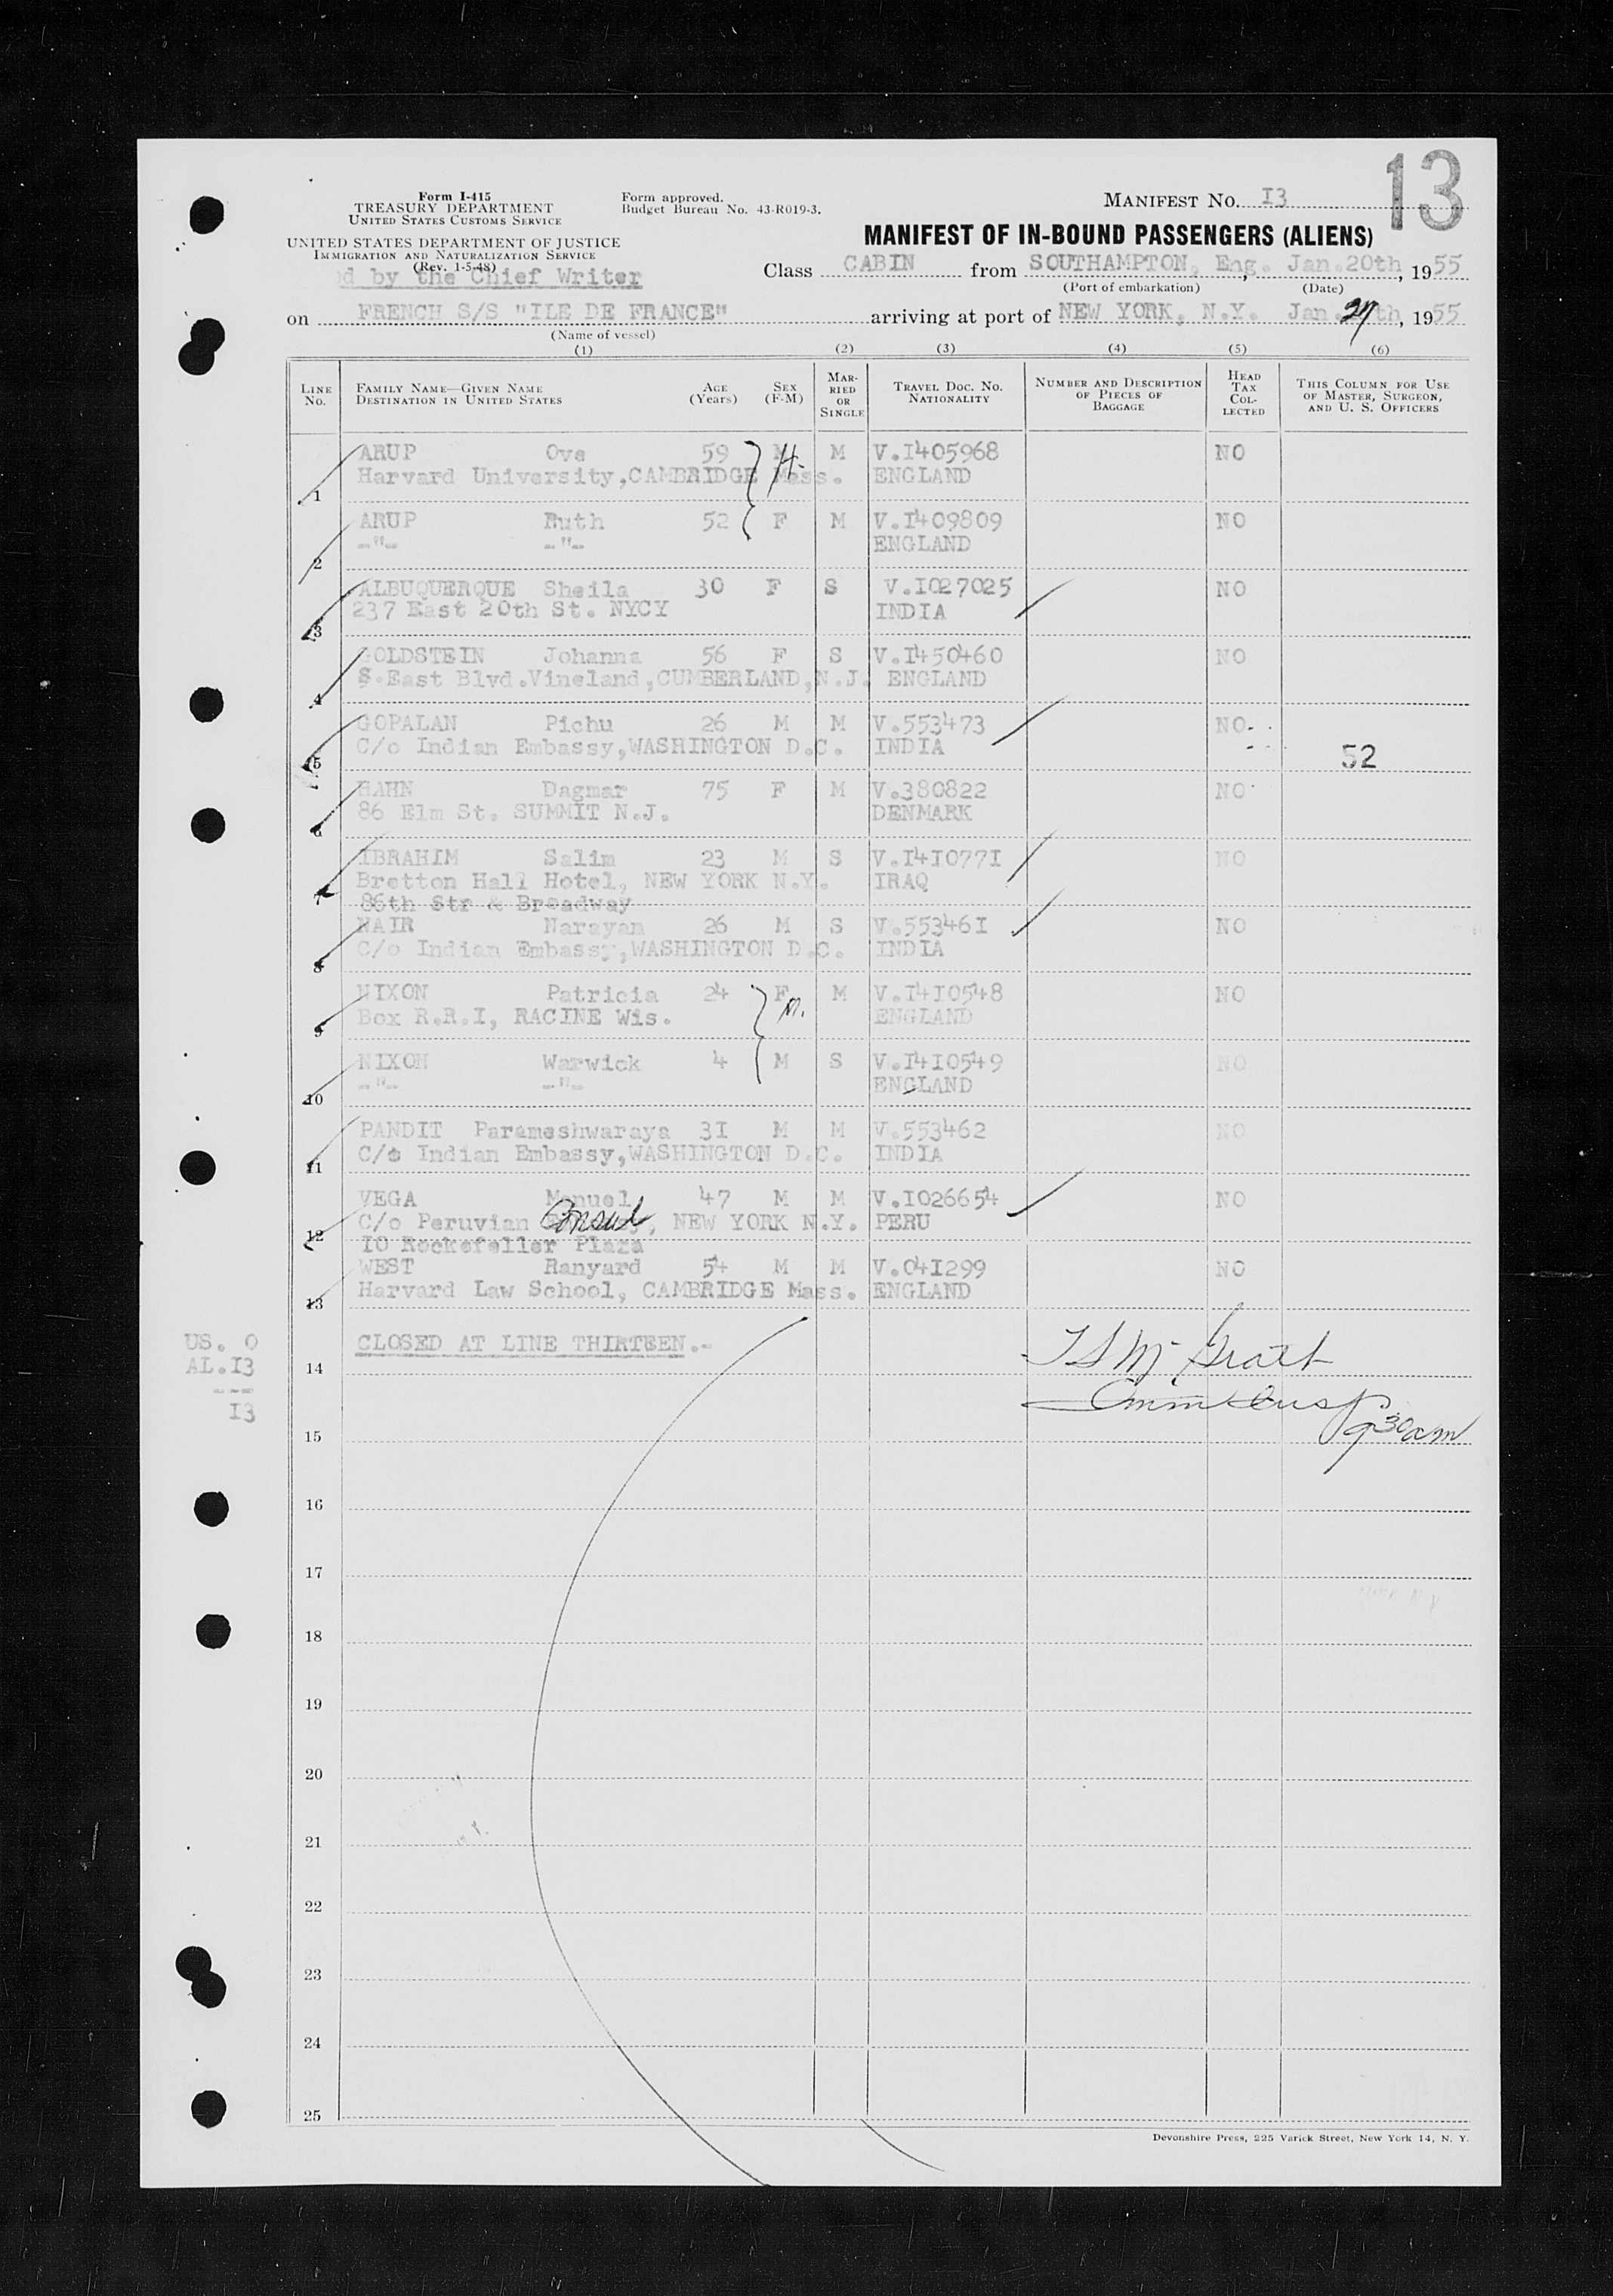 13
Form I-415
TREASURY DEPARTMENT
UNITED STATES CUSTOMS SERVICE
UNITED STATES DEPARTMENT OF JUSTICE
IMMIGRATION AND NATURALIZATION SERVICE
(Rev. 1-5-48)
d by the Chief Writer
Form approved.
Budget Bureau No. 43-R019-3.
MANIFEST NO. I3
MANIFEST OF IN-BOUND PASSENGERS (ALIENS)
Class CABIN from SOUTHAMPTON, Eng. Jan.20th, 1955
(Port of embarkation) (Date)
on FRENCH S/S "ILE DE FRANCE" arriving at port of NEW YORK, N.Y. Jan. 27th, 1955
(Name of vessel)
(1) (2) (3) (4) (5) (6)
LINE NO. FAMILY NAME—GIVEN NAME DESTINATION IN UNITED STATES AGE (Years) SEX (F-M) MARRIED OR SINGLE TRAVEL DOC. NO. NATIONALITY NUMBER AND DESCRIPTION OF PIECES OF BAGGAGE HEAD TAX COLLECTED THIS COLUMN FOR USE OF MASTER, SURGEON, AND U. S. OFFICERS
ARUP Ove 59 M H. M V.I405968 NO
1 Harvard University,CAMBRIDGE Mass. ENGLAND
ARUP Ruth 52 F M V.I409809 NO
2 -"- -"- ENGLAND
ALBUQUERQUE Sheila 30 F S V.I027025 NO
3 237 East 20th St. NYCY INDIA
GOLDSTEIN Johanna 56 F S V.I450460 NO
4 S.East Blvd.Vineland,CUMBERLAND,N.J. ENGLAND
GOPALAN Pichu 26 M M V.553473 NO
5 C/o Indian Embassy,WASHINGTON D.C. INDIA 52
HAHN Dagmar 75 F M V.380822 NO
6 86 Elm St. SUMMIT N.J. DENMARK
IBRAHIM Salim 23 M S V.I4I077I NO
7 Bretton Hall Hotel, NEW YORK N.Y. IRAQ
86th Str & Broadway
NAIR Narayan 26 M S V.55346I NO
8 C/o Indian Embassy,WASHINGTON D.C. INDIA
NIXON Patricia 24 F M. M V.I4I0548 NO
9 Box R.R.I, RACINE Wis. ENGLAND
NIXON Warwick 4 M S V.I4I0549 NO
10 -"- -"- ENGLAND
PANDIT Parameshwaraya 3I M M V.553462 NO
11 C/o Indian Embassy,WASHINGTON D.C. INDIA
VEGA Manuel 47 M M V.I026654 NO
12 C/o Peruvian Consul, NEW YORK N.Y. PERU
I0 Rockefeller Plaza
WEST Ranyard 54 M M V.04I299 NO
13 Harvard Law School, CAMBRIDGE Mass. ENGLAND
US. 0
AL.I3
---
I3
14 CLOSED AT LINE THIRTEEN.-
Imm Insp
9 30 am
15
16
17
18
19
20
21
22
23
24
25
Devonshire Press, 225 Varick Street, New York 14, N. Y.